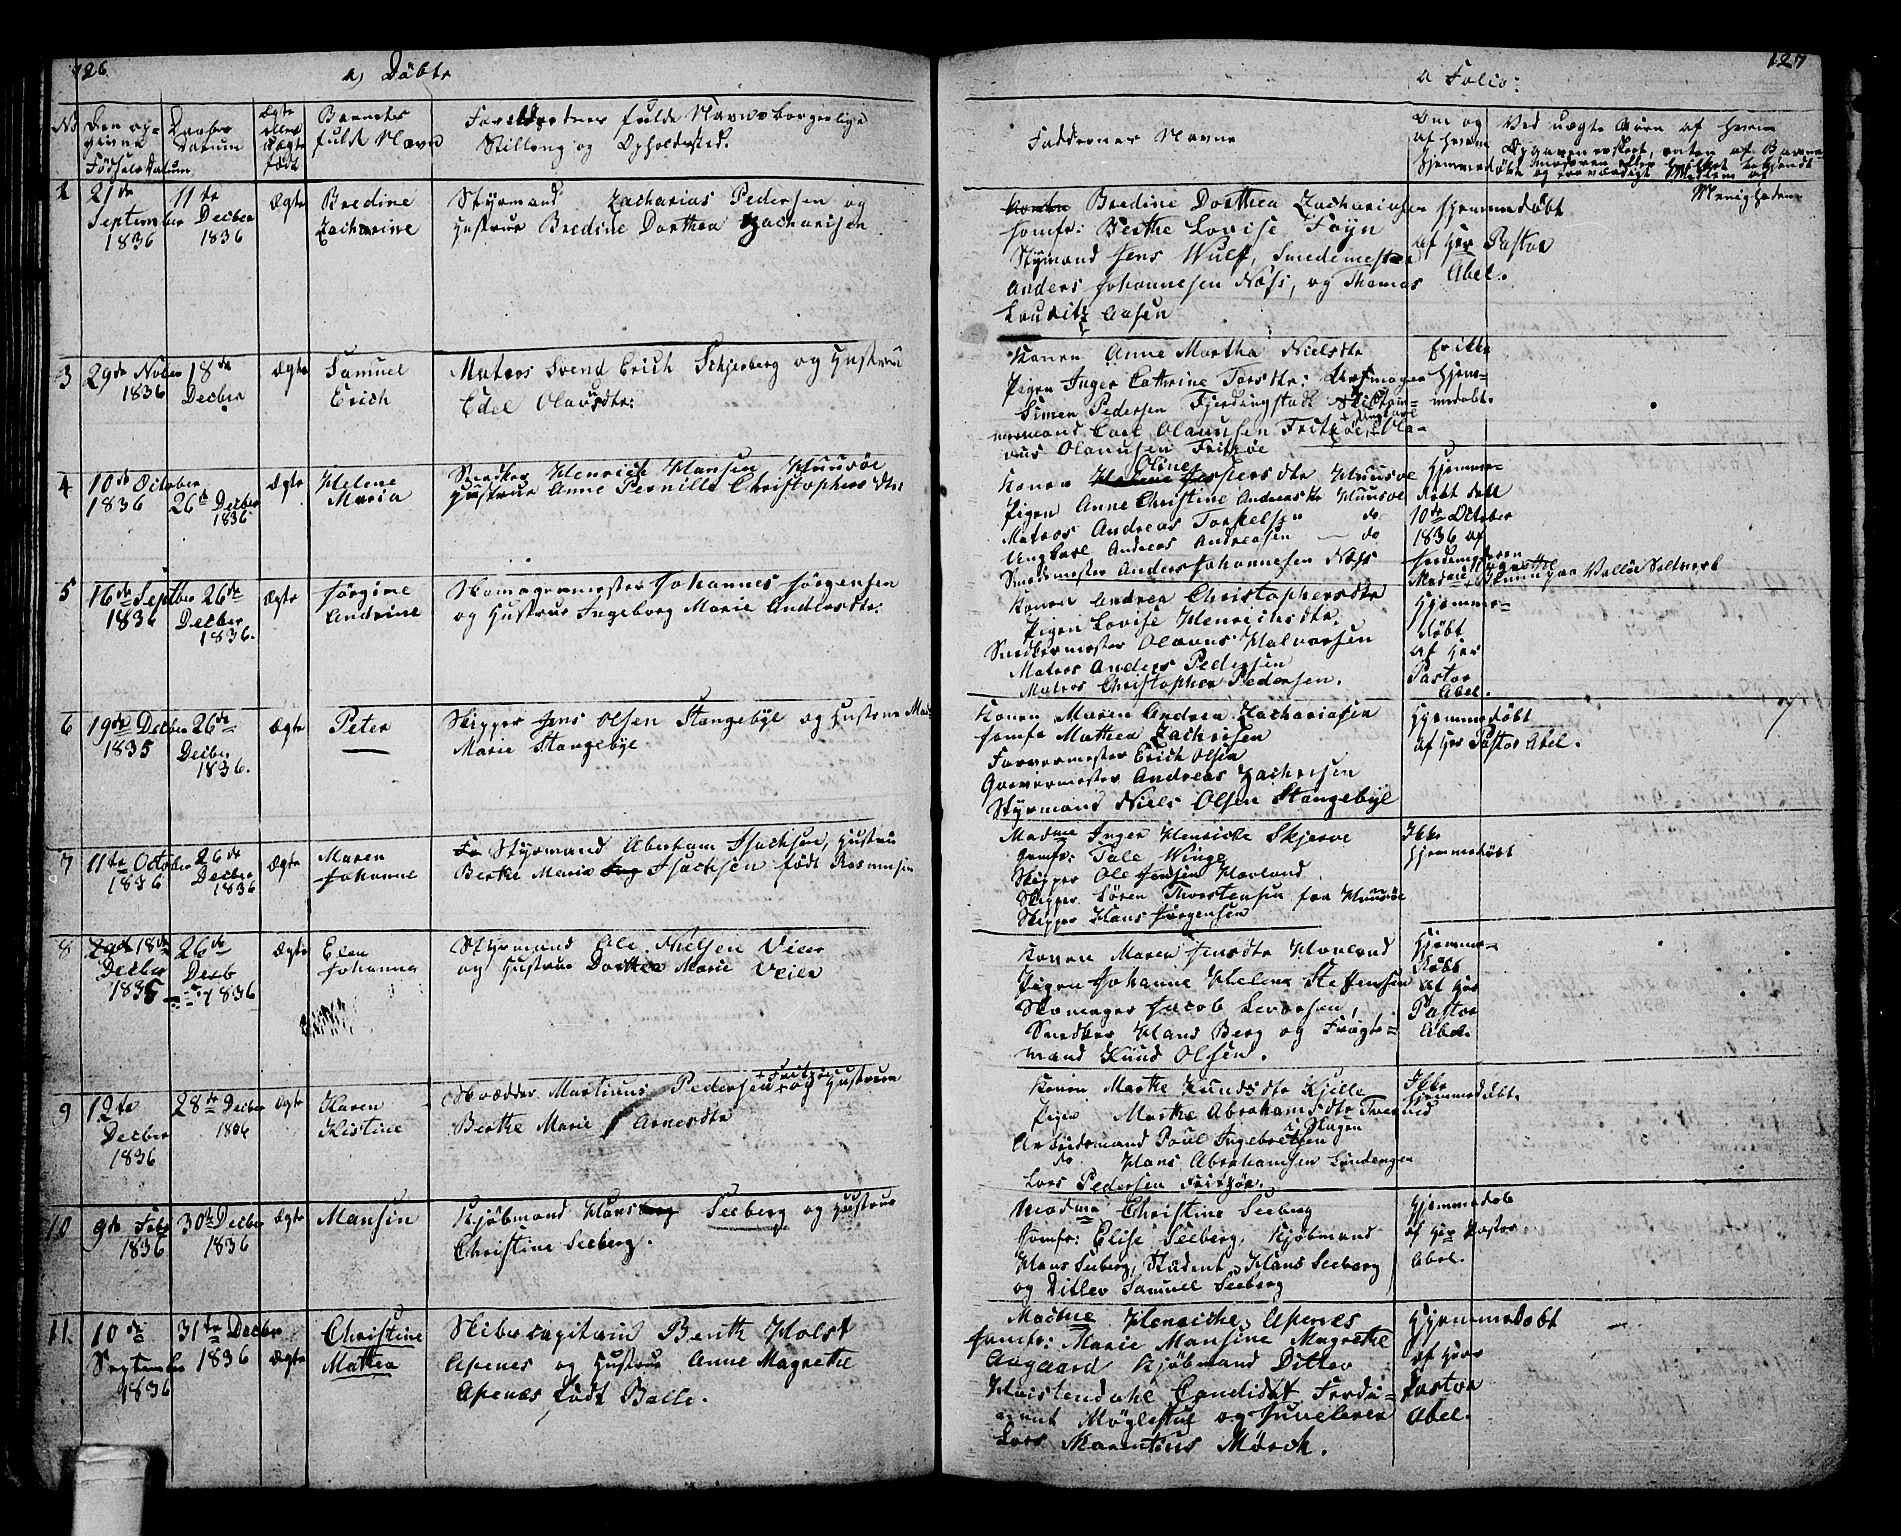 126
a, Döbte
No
Den op-
givne
Fødsels Datum
Daabs
Datum
Ægte
eller
uægte
født
Barnets
fulde Navn
Foreldrenes fulde Navne borgerlige
Stilling og Opholdssted.
2
21de
September
1836
11te
Decber
1836
Ægte
Bredine
Zacharine
Styrmand Zacharias Pedersen og
Hustrue Bredine Dorthea Zachariesen
3
29de Novber
1836
18de
Decber
Ægte
Samuel
Erich
Matros Svend Erich Schjerberg og Hustrue
Edel Olausdtr:
4
10de October
1836
26d Decber
1836
Ægte
Helene
Maria
Snedker Henrich Hansen Huusöe
Hustrue Anne Pernille Christophersdtr:
5
16de Septbr
1836
26de
Decber
1836.
Ægte
Jørgine
Andrine
Skomagermester Johannes Jørgensen
og Hustrue Ingeborg Marie Andersdtr:
6
19de Decber
1835
26de
Decber
1836.
Ægte
Peter
Skipper Jens Olsen Stangebye og Hustrue
Marie Stangebye
7
11te October
1836
26de
Decber
1836
Ægte
Maren
Johanne
Styrmand Abraham Isachsen, Hustrue
Berthe Marie Isachsen født Rasmussen
8
18de
Decber
1835
26de
Decb
1836
Ægte
Elen
Johanna
Styrmand Ole Nielsen Veier
og Hustrue Dorthea Marie Veier
9
12te
Decber
1836
28de Decber
1836
Ægte
Karen
Kistine
Skrædder Martinus Pedersen + Fritzøe og Hustrue
Berthe Marie Arnesdtr
10
9de Febr
1836
30te Decber
1836
Ægte
Mansin
Kjøbmand Hans Seeberg og Hustrue
Christine Seeberg.
11.
10de
September
1836
31te Decber
1836
Ægte
Christine
Mathea
Skibscapitain Bent Holst
Apenes og Hustrue Anne Magrethe
Apenes født Balle.
127
a Folio:
Faddernes Navne
Om og
af hvem
hjemmedøbt
Ved uægte Börn af hvem
Opgaven er skeet, enten af Barne-
moderen eller hvilket bekjendt
og troværdigt Medlem af
Menigheden
Bredine Dorthea Zachariasen
Jomfr: Berthe Lovise Foyn
Styrmand Jens Wulff, Smedemester
Anders Johannesen Næss, og Thomas
Louritz Aasen
Hjemmedöbt
af Hr Pastor
Abel.
Konen Anne Martha Nielsdtr
Pigen Inger Cathrine Larsdtr:
Simen Pedersen Fjerdingstad
Carl Olaussen Fritzöe,
Olaussen Fritzøe
Er ikke
hjem-
medøbt.
Konen Oline Jespersdtr Huusöe
Pigen Anne Christine Andreasdtr Huusöe
Matros Andreas Torkelsen do
Ungkarl Andreas Andreasen do
Smedemester Anders Johannesen Næss
Hjemme-
döbt den
10de October
1836 af
Jordemoderen
Konen Andrea Christophersdtr
Pigen Lovise Henrichsdtr.
Snedkermester Olavus Halvorsen
Matros Anders Pedersen
Matros Christopher Pedersen.
Hjemme-
döbt
af Hr
Pastor
Abel.
Konen Maren Andrea Zachariasen
Jomfr Mathea Zachrisen
Farvermester Erich Olsen
Garvermester Andreas Zachrisen
Styrmand Niels Olsen Stangebye
Hjemmedöbt
af Hr Pastor Abel.
Madme Inger Henricke Skjerve
Jomfr: Tale Winge
Skipper Ole Jensen Havland
Skipper Sören Thorstensen fra Huusöe
Skipper Hans Jørgensen
Ikke
hjemmedöbt
Konen Maren Jensdtr Havland
Pigen Johanne Helene Steffensen
Skomager Jacob Levorsen,
Snedker Hans Berg og Fragte-
mand Knud Olsen.
Hjemme-
döbt
af Hr
Pastor
Abel.
Konen Marthe Knudsdtr Kjille
Pigen Marthe Abrahamsdtr
Arbeidsmand Poul Ingebretsen Skogen
do Hans Abrahamsen
Lars Pedersen Fritzøe.
Ikke
hjemmedøbt.
Madme Christine Seeberg
Jomfr: Elise Seeberg, Kjöbmand
Hans Seeberg, Student Hans Seeberg
og Ditlev Samuel Seeberg
Hjemmedöb
af Hr Pastor
Abel.
Madme Henriche Apenes
Jomfr: Marie Mansine Magrethe
Aagaard Kjøbmand Ditlev
Candidat Ferdi-
nant Møglestue og Juveleren
Lars Marentius Mörch.
Hjemmedöbt
af Herr
Pastor
Abel.